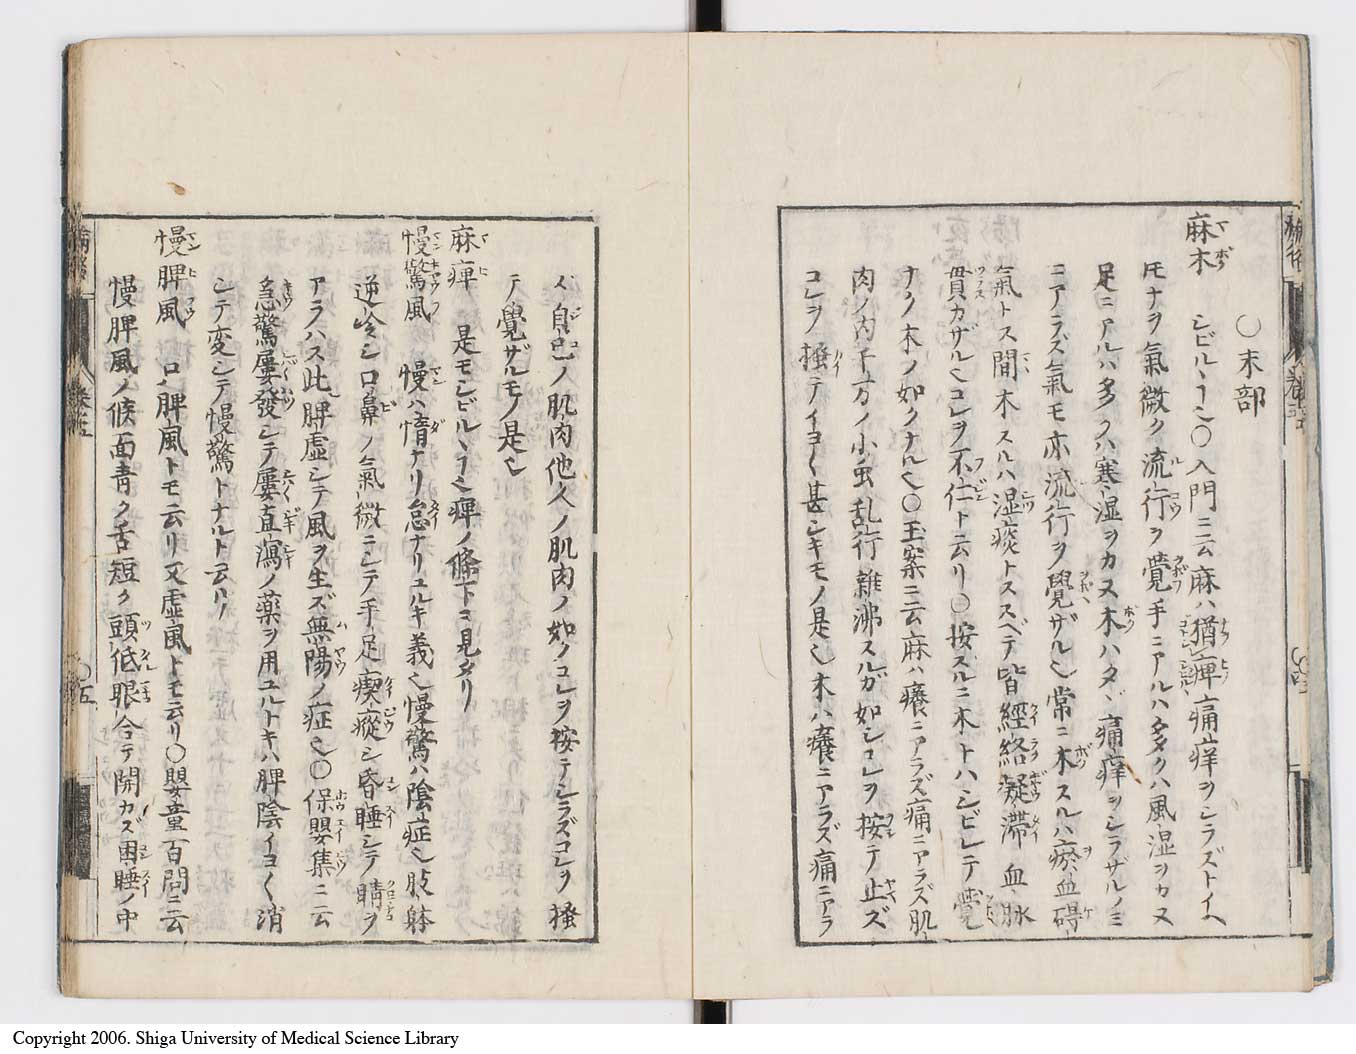 ○末部
麻木 シビルヽ丁也○入門ニ云麻ハ猶痺痛痒ヲシラズトイヘ
𪜈ナヲ氣微ク流行ヲ覺手ニアルハ多クハ風湿ヲカヌ
足ニアルハ多クハ寒湿ヲカヌ木ハタヾ痛痒ヲシラザルノミ
ニアラズ氣モ亦流行ヲ覺ザル也常ニ木スルハ瘀血碍
氣トス間木スルハ湿痰トススベテ皆經絡凝滞血脉
貫カザル也コレヲ不仁ト云リ○按スルニ木トハシビレテ覺
ナク木ノ如クナル也○玉案ニ云麻ハ癢ニアラズ痛ニアラズ肌
肉ノ内千万ノ小虫乱行雜沸スルガ如シコレヲ按テ止ズ
コレヲ搔テイヨ〱甚シキモノ是也木ハ癢ニアラズ痛ニアラ
ズ自己ノ肌肉他人ノ肌肉ノ如クコレヲ按テシラズコレヲ搔
テ覺ザルモノ是也
麻痺 是モシビルヽ丁也痺ノ條下ニ見タリ
慢驚風 慢ハ惰ナリ怠ナリユルキ義也慢驚ハ陰症也肢躰
逆冷シ口鼻ノ氣微ニシテ手足瘈瘲シ昏睡シテ睛ヲ
アラハス此脾虚シテ風ヲ生ズ無陽ノ症也○保嬰集ニ云
急驚屢發シテ屢直瀉ノ藥ヲ用ユルトキハ脾陰イヨ〱消
シテ変シテ慢驚トナルト云リ
慢脾風 只脾風トモ云リ又虚風トモ云リ○嬰童百問ニ云
慢脾風ノ候面青ク舌短ク頭低眼合テ開カズ困睡ノ中